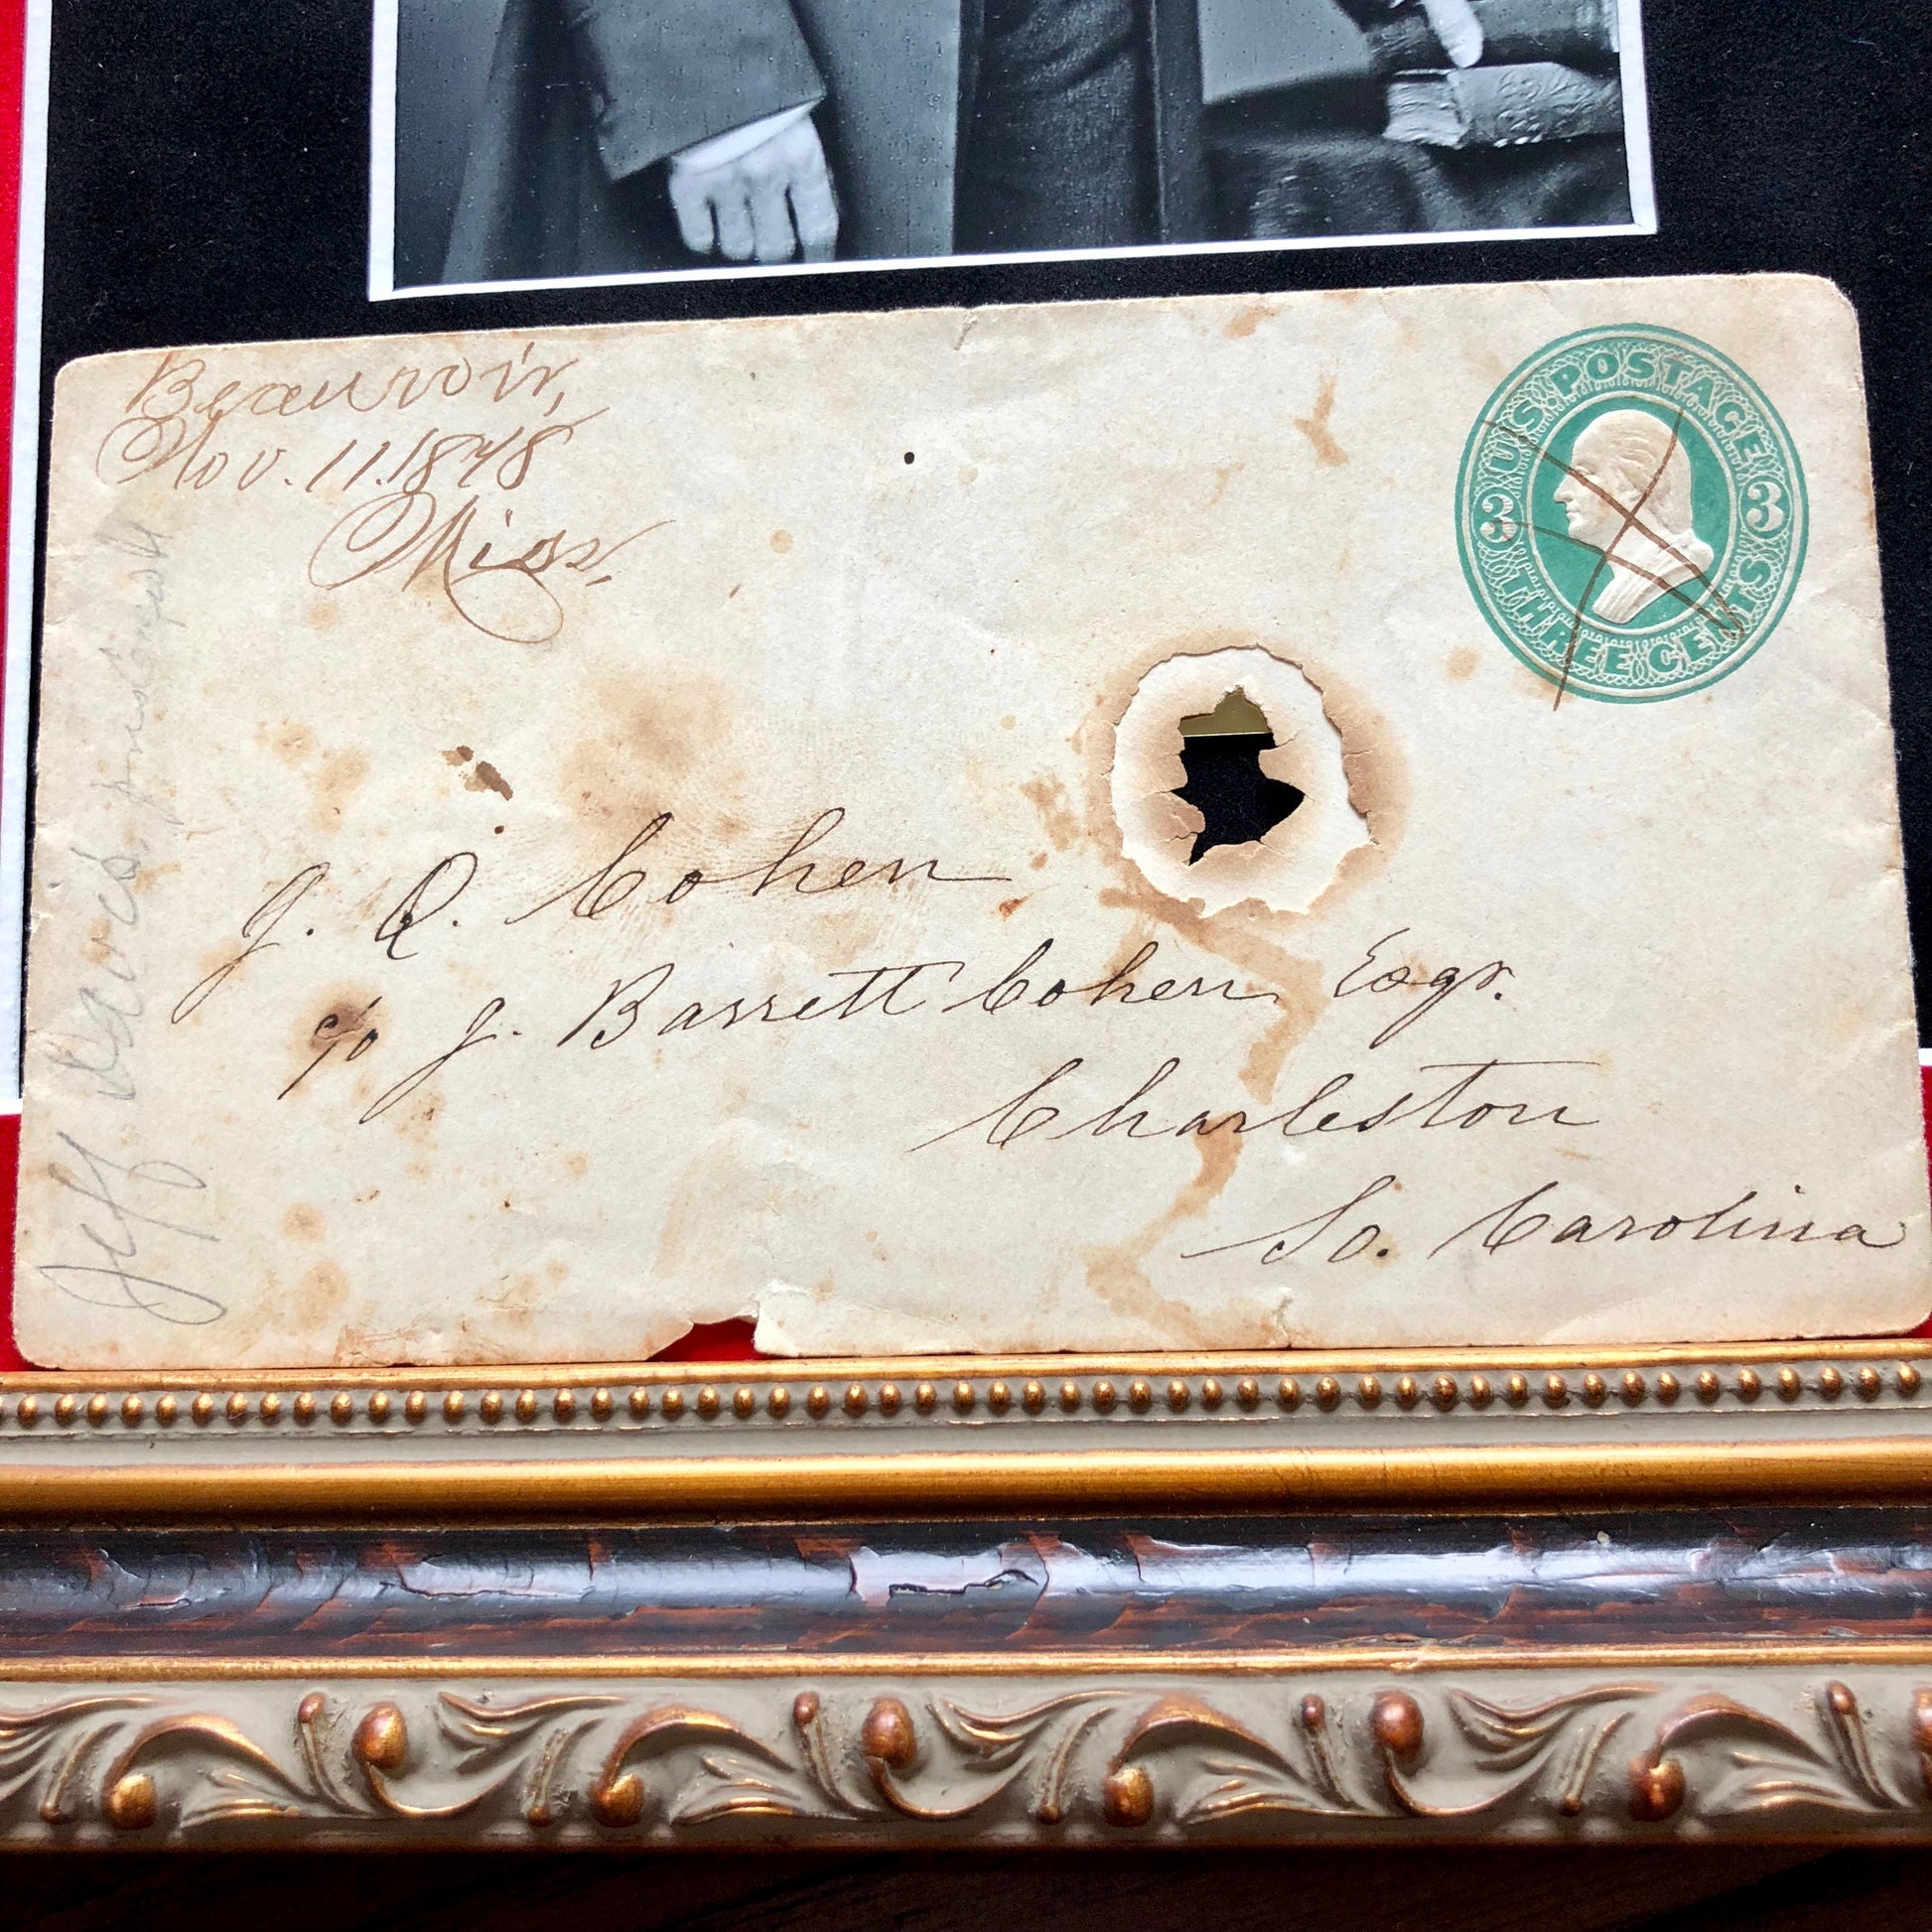 Beauvoir,
Nov. 11. 1878
Miss.
US POSTAGE
3 3
THREE CENTS
J. Q. Cohen
c/o J. Barrett Cohen Esqr.
Charleston
So. Carolina
Jeff Davis